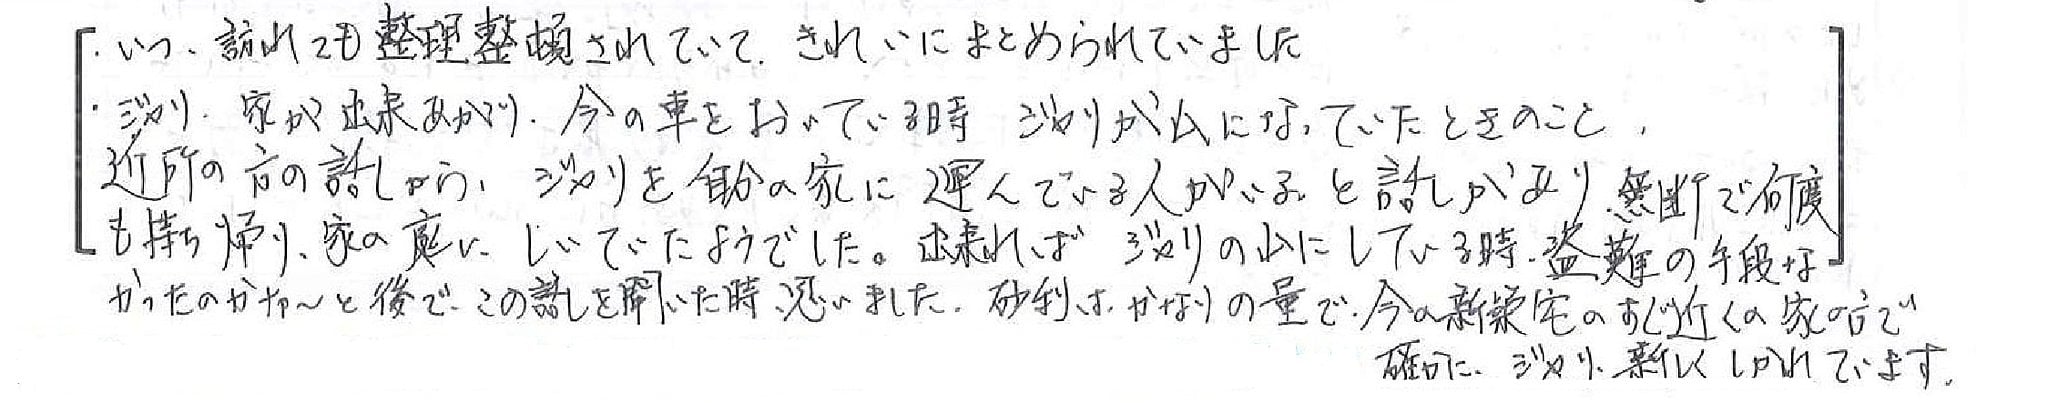 ・いつ、訪れても整理整頓されていて、きれいにまとめられていました
・ジャリ、家が出来あがり、今の車をおいている時 ジャリが山になっていたときのこと、
近所の方の話しから、ジャリを自分の家に運んでいる人がいると話しがあり、無断で何度
も持ち帰り、家の裏に、しいていたようでした。出来れば ジャリの山にしている時、盗難の手段な
かったのかな〜と後で、この話しを聞いた時、思いました。砂利は、かなりの量で、今の新築宅のすぐ近くの家の方で
確かに、ジャリ、新しくしかれています。